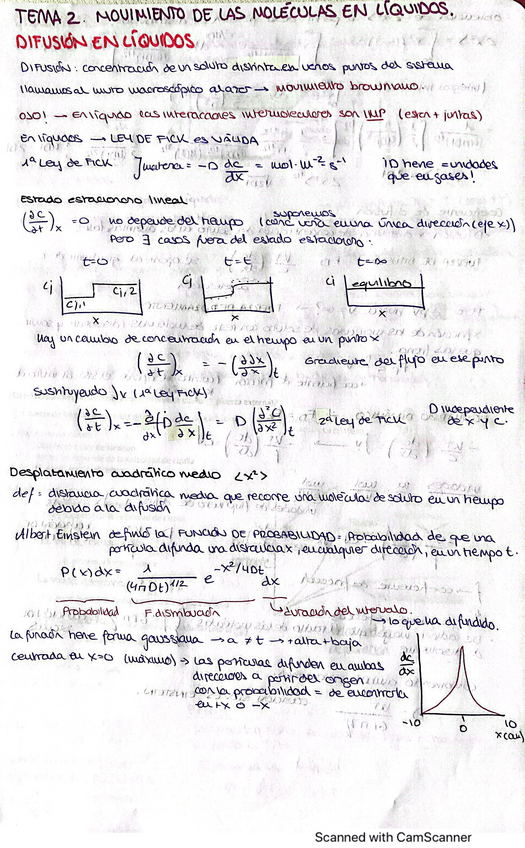 TEMA 2. MOVIMIENTO DE LAS MOLÉCULAS EN LÍQUIDOS.
DIFUSIÓN EN LÍQUIDOS
DIFUSIÓN: concentración de un soluto distinta en varios puntos del sistema
llamamos al muro macroscópico al azar → MOVIMIENTO BROWNIANO.
OJO! → En líquido las interacciones intermoleculares son IMP (están + juntas)
en líquidos → LEY DE FICK ES VÁLIDA
1ª Ley de FICK J materia = -D dc/dx = mol·m⁻²·s⁻¹ ¡D tiene = unidades
que en gases!
Estado estacionario lineal:
(∂c/∂t)x = 0 no depende del tiempo (suponemos conc varía en una única dirección (eje x))
Pero ∃ casos fuera del estado estacionario:
t=0 t=t t=∞
Cj Cj,1 Cj,2 Cj Cj equilibrio
x x x
Hay un cambio de concentración en el tiempo en un punto x
(∂c/∂t)x = -(∂Jx/∂x)t Gradiente del flujo en ese punto
Sustituyendo Jx (1ª Ley Fick)
(∂c/∂t)x = -∂/∂x (D dc/∂x)t = D (∂²C/∂x²)t 2ª Ley de Fick D independiente
de x y c.
Desplazamiento cuadrático medio <x²>
def = distancia cuadrática media que recorre una molécula de soluto en un tiempo
debido a la difusión
Albert Einstein definió la FUNCIÓN DE PROBABILIDAD = Probabilidad de que una
partícula difunda una distancia x, en cualquier dirección, en un tiempo t.
P(x)dx = 1/(4πDt)^1/2 e^-x²/4Dt dx
Probabilidad F distribución ↳ duración del intervalo.
→ lo que ha difundido.
La función tiene forma gaussiana → a ≠ t → + alta + baja
Centrada en x=0 (máximo) → Las partículas difunden en ambas
direcciones a partir del origen
con la probabilidad = de encontrarla
en +x o -x
dc/dx
-10 0 10
x(cm)
Scanned with CamScanner